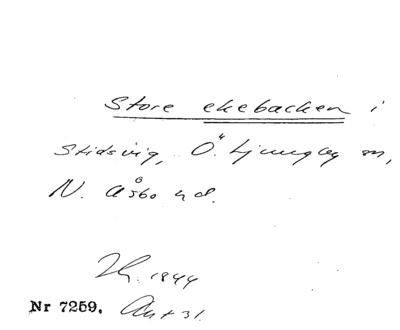 Store ekebacken i
Stidsvig, Ö. Ljungby sn,
N. Åsbo hd.
1844
Nr 7259. Ant 31.